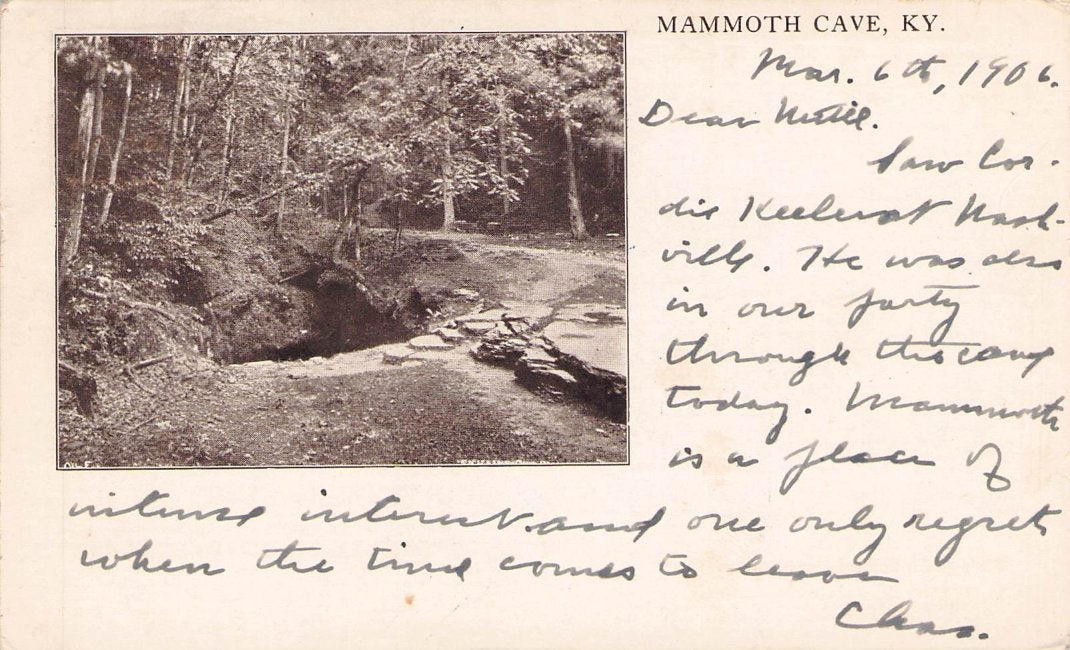 MAMMOTH CAVE, KY.
Mar. 6th, 1906.
Dear
Saw Cor-
die at Nash-
ville. He was also
in our party
through the cave
today. Mammoth
is a place of
intense interest and one only regrets
when the time comes to leave
Chas.